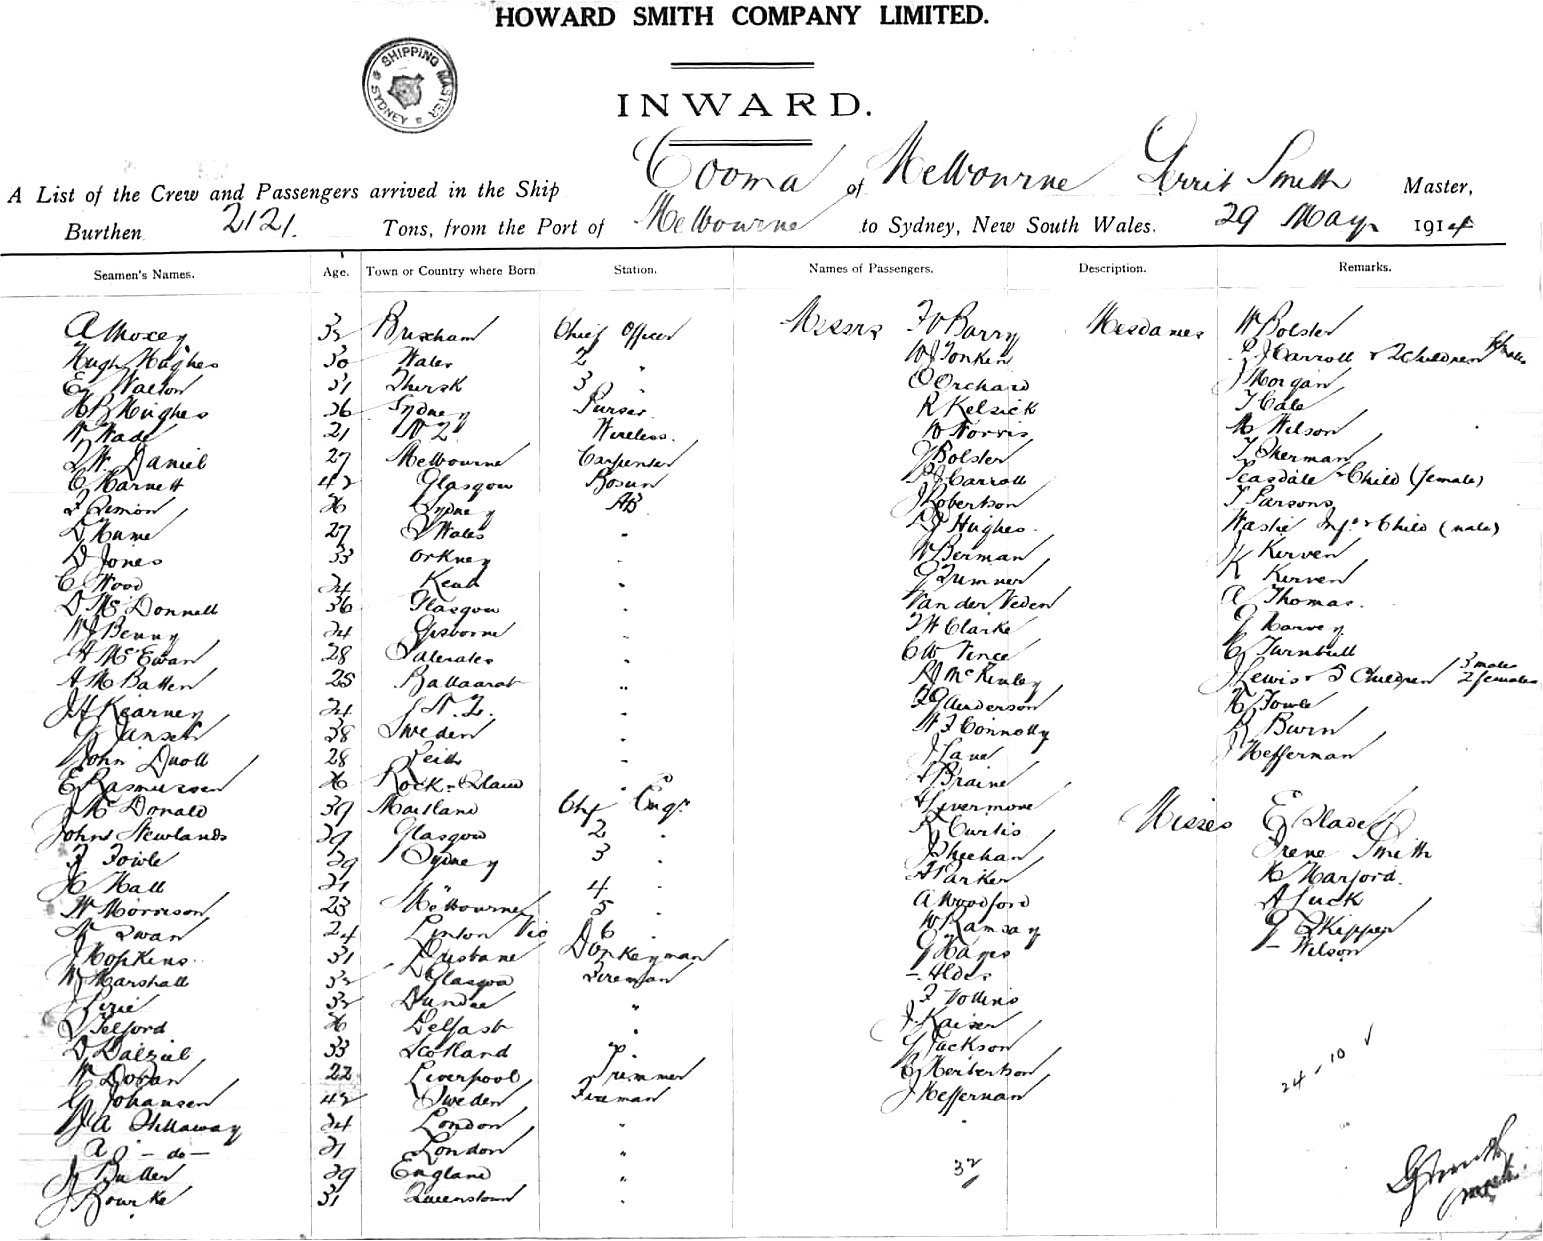 HOWARD SMITH COMPANY LIMITED.
SHIPPING MASTER SYDNEY
INWARD.
A List of the Crew and Passengers arrived in the Ship Cooma of Melbourne Gerrit Smith Master,
Burthen 2121. Tons, from the Port of Melbourne to Sydney, New South Wales. 29 May 1914
Seamen's Names. Age. Town or Country where Born Station. Names of Passengers. Description. Remarks.
A Moxey 32 Brixham Chief Officer
Hugh Hughes 30 Wales 2 "
E Walton 31 Thirsk 3 "
H B Hughes 36 Sydney Purser
W Wade 21 N Z Wireless.
T W Daniel 27 Melbourne Carpenter
C Harnett 42 Glasgow Bosun
Sydney AB
D Hume 27 S Wales "
D Jones 33 Orkney "
C Wood 24 Kent "
D McDonnell 36 Glasgow "
W J Benny 24 Gisborne "
H McEwan 28 "
A M Batten 25 Ballaarat "
J H Kearney 24 N. Z. "
G Jansen 38 Sweden "
John Duoll 28 Leith "
E Rasmussen "
J McDonald 39 Maitland Chf Engr
John Newlands 29 Glasgow 2 "
F Fowle 29 Sydney 3 "
H Hall 21 " 4 "
W Morrison 23 Melbourne 5 "
Swan 24 Linton Vic 6 "
J Hopkins 31 Brisbane Donkeyman
W Marshall 32 Glasgow Fireman
J Pirie 32 Dundee "
Telford Belfast "
D Dalziel 33 Scotland "
W Doran 22 Liverpool Trimmer
G Johansen 42 Sweden Fireman
J A Hillaway 24 London "
A J - do - 21 London "
J Butler 29 England "
J Rourke 31 Queenstown "
Messrs F V Barry
W J Tonkin
O Orchard
R Kelsick
W Norris
J Bolster
P J Carroll
J Robertson
D J Hughes
W Berman
G Zumner
Van der Veden
F H Clarke
C W Vince
R J McKinley
F G Anderson
W F Connolly
J Lane
A Braine
A Livermore
R Curtis
J Sheehan
A Parker
A Woodford
W Ramsay
G Hayes
- Aldes
F Vollins
J Kaiser
G Jackson
C Herbertson
J Heffernan
32
Mesdames W Bolster
P J Carroll & 2 Children females
J Morgan
T Cale
M Wilson
T Sherman
Teasdale & Child (female)
T Parsons
Wastie Inft & Child (male)
K Kerven
K Kerven
A Thomas.
G Harvey
C Turnbull
J Lewis & 5 Children 3 males 2 females
H Fowle
R Burn
J Heffernan
Misses E Slade
Irene Smith
H Harford.
A Luck
G Skipper
- Wilson
24 - 10
G Smith
master